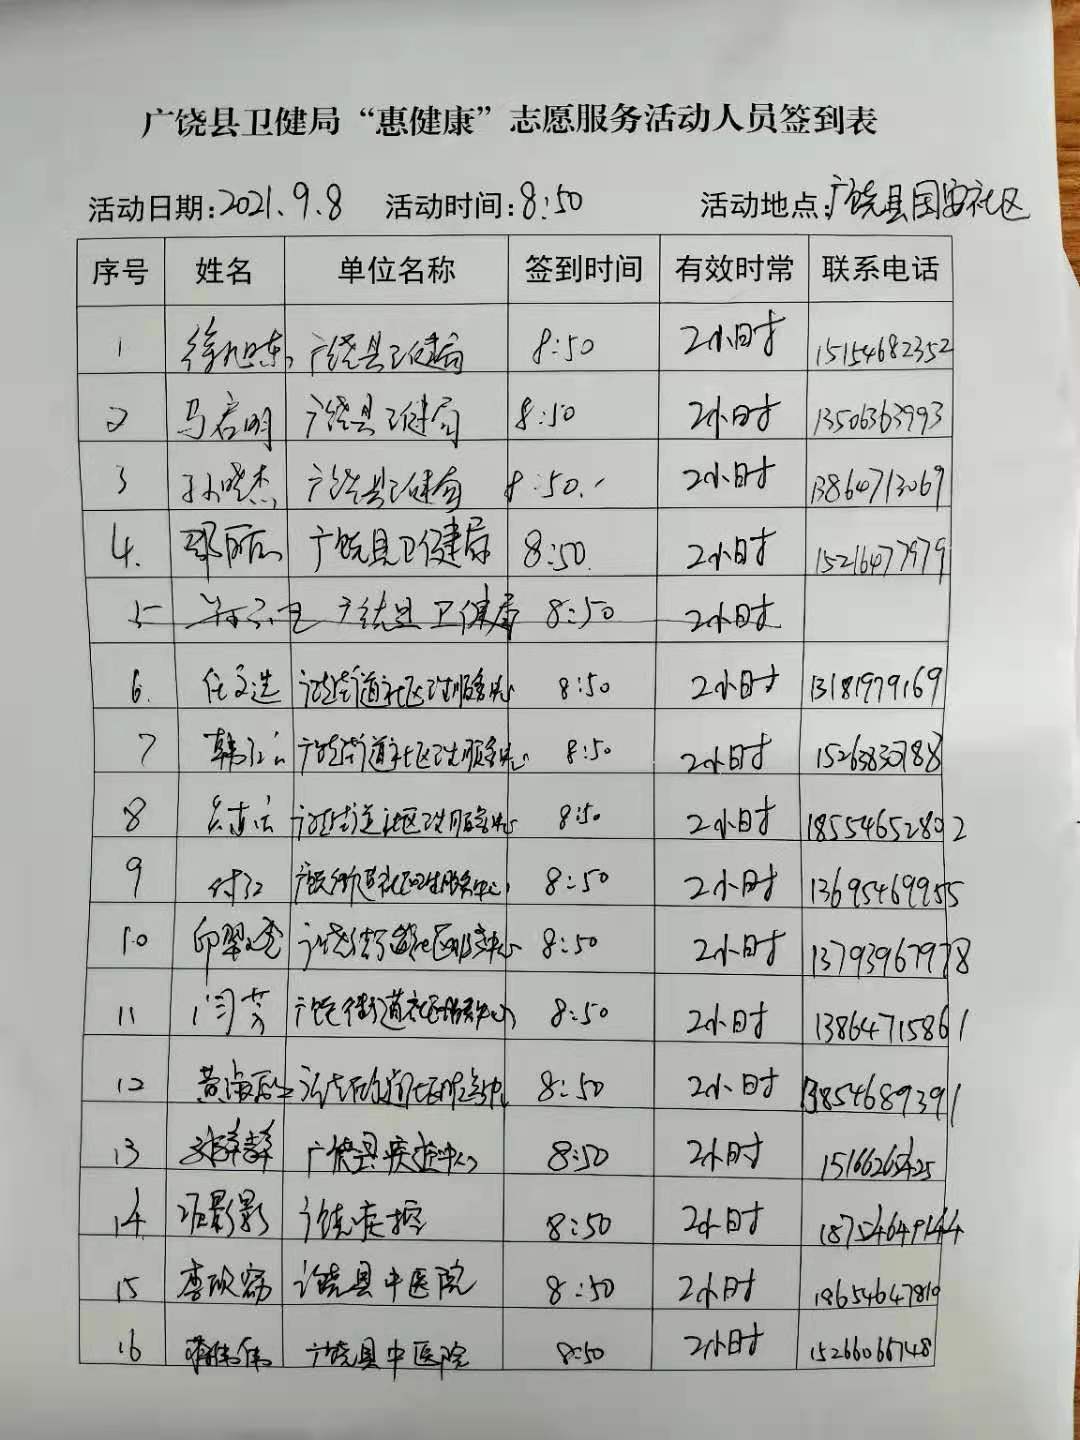 广饶县卫健局“惠健康”志愿服务活动人员签到表
活动日期:2021.9.8 活动时间:8:50 活动地点:广饶县国安社区
序号 姓名 单位名称 签到时间 有效时常 联系电话
1 徐旭东 广饶县卫健局 8:50 2小时 15154682352
2 马启明 广饶县卫健局 8:50 2小时 13506363993
3 孙晓杰 广饶县卫健局 8:50 2小时 13864713069
4. 广饶县卫健局 8:50. 2小时 15216477979
5 广饶县卫健局 8:50 2小时
6. 任文选 广饶街道社区卫生服务中心 8:50 2小时 13181979169
7 广饶街道社区卫生服务中心 8:50 2小时 15263830788
8 广饶街道社区卫生服务中心 8:50 2小时 18554652802
9 付红 广饶街道社区卫生服务中心 8:50 2小时 13695469955
10 广饶街道社区服务中心 8:50 2小时 13793967978
11 闫芳 广饶街道社区服务中心 8:50 2小时 13864715861
12 8:50 2小时 13854689391
13 广饶县疾控中心 8:50 2小时 15166265425
14. 广饶疾控 8:50 2小时 18754649144
15 李欣 广饶县中医院 8:50 2小时 18654647819
16 蒋伟伟 广饶县中医院 8:50 2小时 15266066748